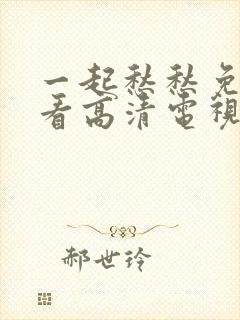 一起愁愁免
看高清電視
郝世玲